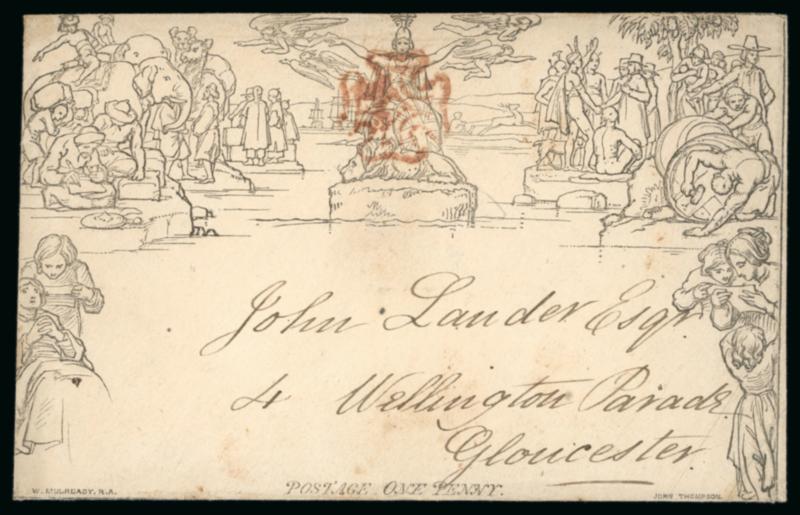 John Lander Esqr
4 Wellington Parade
Gloucester.
POSTAGE ONE PENNY.
W. MULREADY, R.A.
JOHN THOMPSON